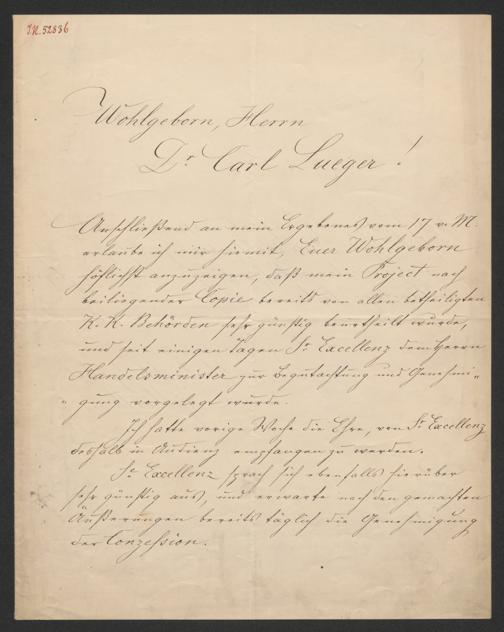 I.N. 52836
Wohlgeborn, Herrn
Dr Carl Lueger!
Anschließend an mein Ergebenes vom 17 v. M.
erlaube ich mir hiermit, Euer Wohlgeborn
höflichst anzuzeigen, daß mein Project nach
beiliegender Copie bereits von allen betheiligten
K. K. Behörden sehr günstig beurtheilt wurde,
und seit einigen Tagen Sr Excellenz dem Herrn
Handelsminister zur Begutachtung und Genehmi-
gung vorgelegt wurde.
Ich hatte vorige Woche die Ehre, von Sr Excellenz
deshalb in Audienz empfangen zu werden.
Se Excellenz sprach sich ebenfalls hierüber
sehr günstig aus, und erwarte nach den gemachten
Äußerungen bereits täglich die Genehmigung
der Conzession.